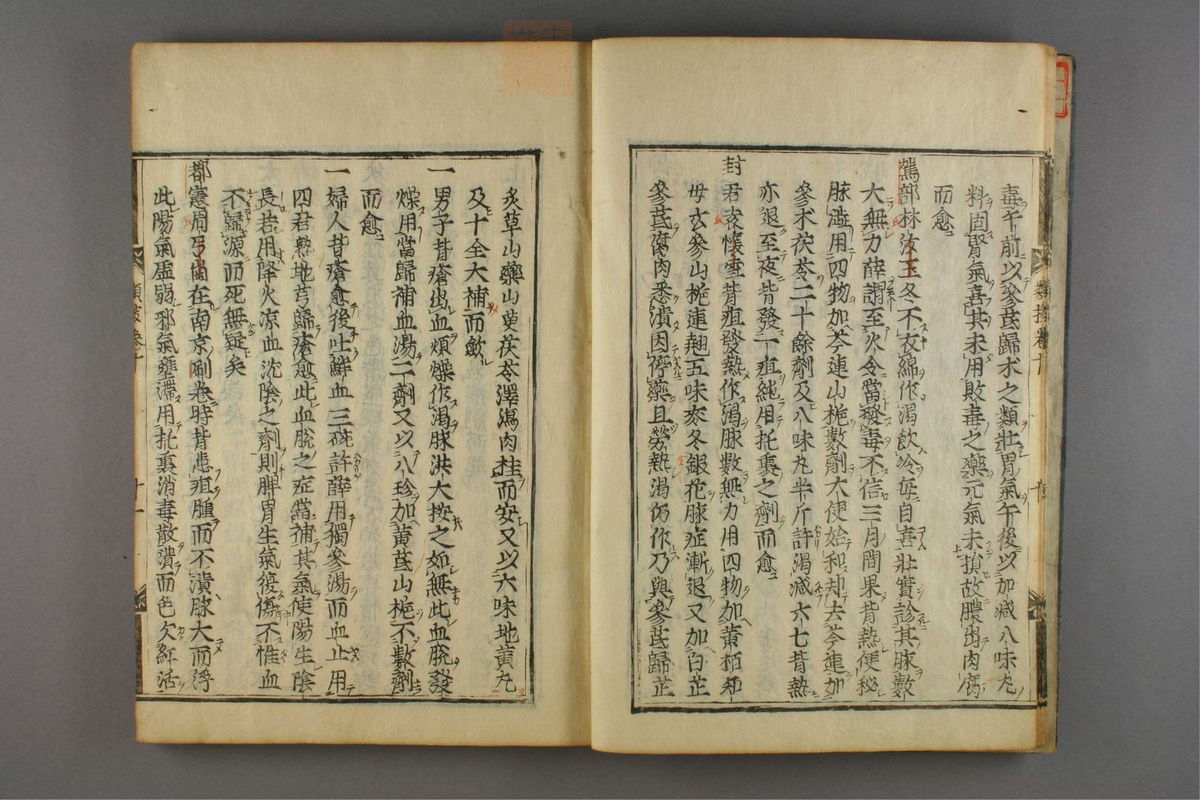 毒午前以參芪歸术之類壯胃氣午後以加減八味丸
料固腎氣喜其未用敗毒之藥元氣未損故膿出肉腐
而愈
駕部林汝玉冬不衣綿作渴飲冷每自喜壯實診其脉數
大無力薛謂至火令當發毒不信三月間果背熱便秘
脉濇用四物加芩連山梔數劑大便始利却去芩連加
參术茯苓二十餘劑及八味丸半斤許渴减六七背熱
亦退至夜背發一疽純用托裏之劑而愈
封君袁懷雪背疽發熱作渴脉數無力用四物加黄栢知
母玄參山梔連翹五味麥冬銀花脉症漸退又加白芷
參芪腐肉悉潰因停藥且勞熱渴仍作乃與參芪歸芷
炙草山藥山茰茯苓澤瀉肉桂而安又以六味地黄丸
及十全大補而歛
一男子背瘡出血煩燥作渴脉洪大按之如無此血脱發
燥用當歸補血湯二劑又以八珍加黄芪山梔不數劑
而愈
一婦人背瘡愈後吐鮮血三碗許薛用獨參湯而血止用
四君熟地芎歸瘡愈此血脱之症當補其氣使陽生陰
長若用降火凉血沈陰之劑則脾胃生氣復傷不惟血
不歸源而死無疑矣
都憲周弓岡在南京刷卷時背患疽腫而不潰脉大而浮
此陽氣虛弱邪氣壅滯用托裏消毒散潰而色欠紅活